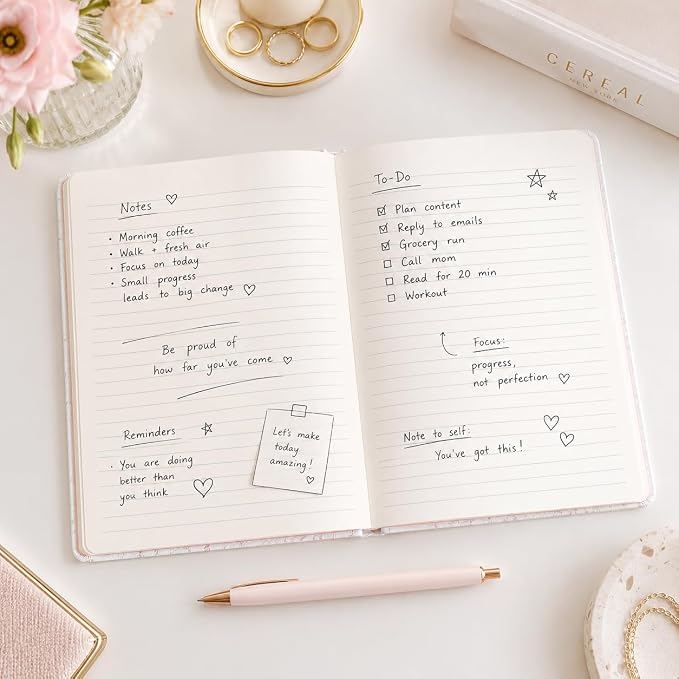 CEREAL
NEW YORK
Notes
• Morning coffee
• Walk + fresh air
• Focus on today
• Small progress
leads to big change
Be proud of
how far you've come
Reminders
• You are doing
better than
you think
Let's make
today
amazing!
To-Do
Plan content
Reply to emails
Grocery run
Call mom
Read for 20 min
Workout
Focus:
progress,
not perfection
Note to self:
You've got this!